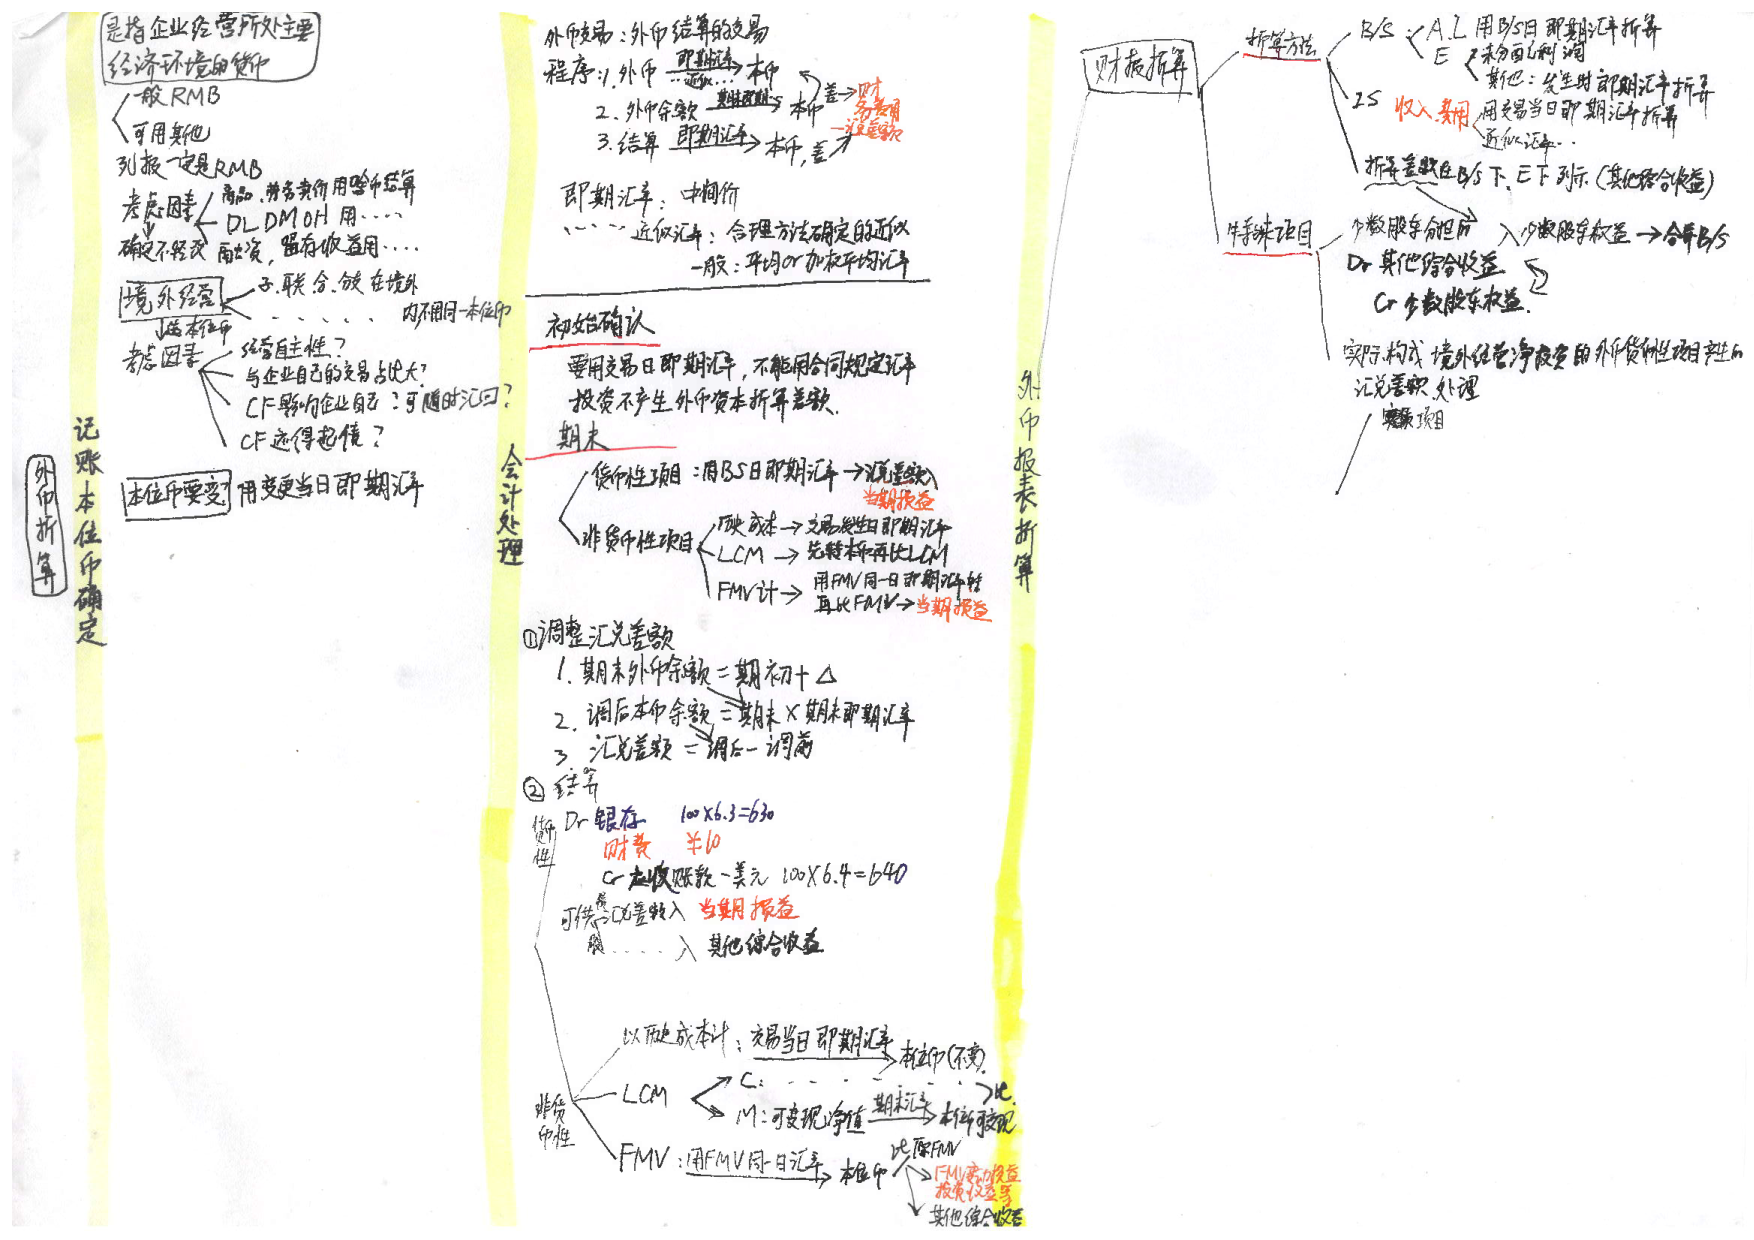 外币折算
记账本位币确定
是指企业经营所处主要
经济环境的货币
一般RMB
可用其他
列报一定是RMB
考虑因素
商品、劳务卖价用啥币结算
DL DM OH 用····
融资，留存收益用····
确定不轻改
境外经营
子、联、合、放在境外
· · · · · 内不用同一本位币
选本位币
考虑因素
经营自主性？
与企业自己的交易占比大？
CF影响企业自己？可随时汇回？
CF还得起债？
本位币要变？ 用变更当日即期汇率
会计处理
外币交易：外币结算的交易
程序：1. 外币 即期汇率 近似… 本币
2. 外币余额 期末即期 本币
3. 结算 即期汇率 本币，差
差→财务费用
—汇兑差额
即期汇率：中间价
····近似汇率：合理方法确定的近似
一般：平均or加权平均汇率
初始确认
要用交易日即期汇率，不能用合同规定汇率
投资不产生外币资本折算差额.
期末
货币性项目：用BS日即期汇率→汇兑差额入
当期损益
非货币性项目
历史成本→交易发生日即期汇率
LCM→先转本币再比LCM
FMV计→用FMV同一日即期汇率转
再比FMV→当期损益
①调整汇兑差额
1. 期末外币余额=期初+△
2. 调后本币余额=期末×期末即期汇率
3 汇兑差额=调后-调前
②结算
货币性
Dr 银存 100×6.3=630
财费 ¥10
Cr 应收账款-美元 100×6.4=640
可供 债 汇差额入 当期损益
股 ····入 其他综合收益
非货币性
以历史成本计：交易当日即期汇率 本位币(不变).
LCM
C: - - - - - - 比.
M：可变现净值 期末汇率 本位币可变现
FMV：用FMV同一日汇率 本位币
比原FMV
FMV变动损益
投资收益等
其他综合收益
外币报表折算
财报折算
折算方法
B/S
A.L 用B/S日即期汇率折算
E
未分配利润
其他：发生时即期汇率折算
IS 收入 费用
用交易当日即期汇率折算
近似汇率…
折算差额在B/S下、E下列示(其他综合收益)
特殊项目
少数股东分担的 入少数股东权益→合并B/S
Dr 其他综合收益
Cr 少数股东权益.
实际构成境外经营净投资的外币货币性项目产生的
汇兑差额处理
项目